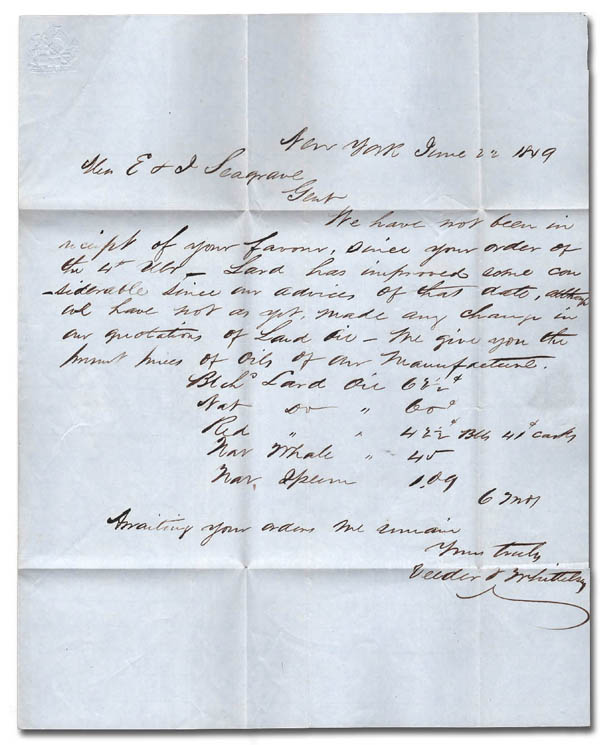 New York June 22 1849
Mess E & J Seagrave
Gent
We have not been in
reciept of your favour, since your order of
the 4th Ult — Lard has improved some con
-siderable since our advices of that date, altho
we have not as yet, made any change in
our quotations of Lard Oil — We give you the
present prices of Oils of our Manufacture.
Blchd Lard Oil 62½ ¢
Nat do " 60 ¢
Red " " 42½ ¢ Bbls 41 ¢ casks
Nar Whale " 45
Nar Sperm 1.09
6 mos
Awaiting your orders we remain
Yours truly
Veeder & Whittelsy